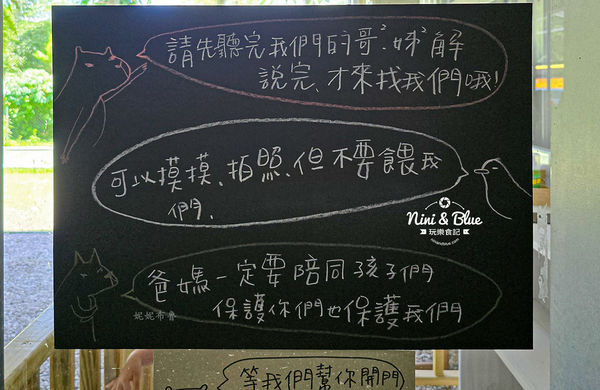 請先聽完我們的哥²姊²解
說完、才來找我們哦!
可以摸摸、拍照、但不要餵我
們、
Nini & Blue
玩樂食記
niniandblue.com
爸媽一定要陪同孩子們
保護你們也保護我們
妮妮布魯
等我們幫你開門